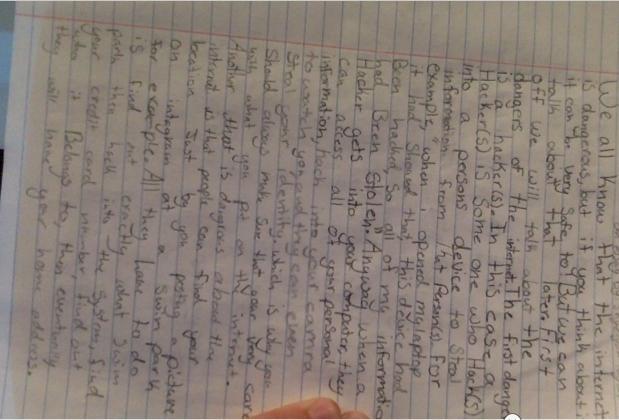 We all know that the internet
is dangerous, but if you think about i
it can be very safe to! But we can
talk about that later. First
off we will talk about the
dangers of the internet. The first dange
is a hacker(s). In this case a
Hacker(s) is some one who Hack(s)
into a persons device to steal
information from that Person(s). for
example, when i opened my laptop
it had showed that, this device had
Been hacked, so all of my informatio
had Been stolen. Anyway when a
Hacker gets into your computer, they
can access all of your personal
information, hack into your camra
to watch you and they can even
Steal your identity. which is why you
Should always make sure that your very care
with what you put on the internet.
Another that is dangiros about the
internet is that people can find your
location Just by you posting a picture
on instagram at a swim park
for example. All they have to do
is find out exactly what swim
park then hack into the system, find
your credit card number find out
who it Belongs to, then eventually
they will have your home address.